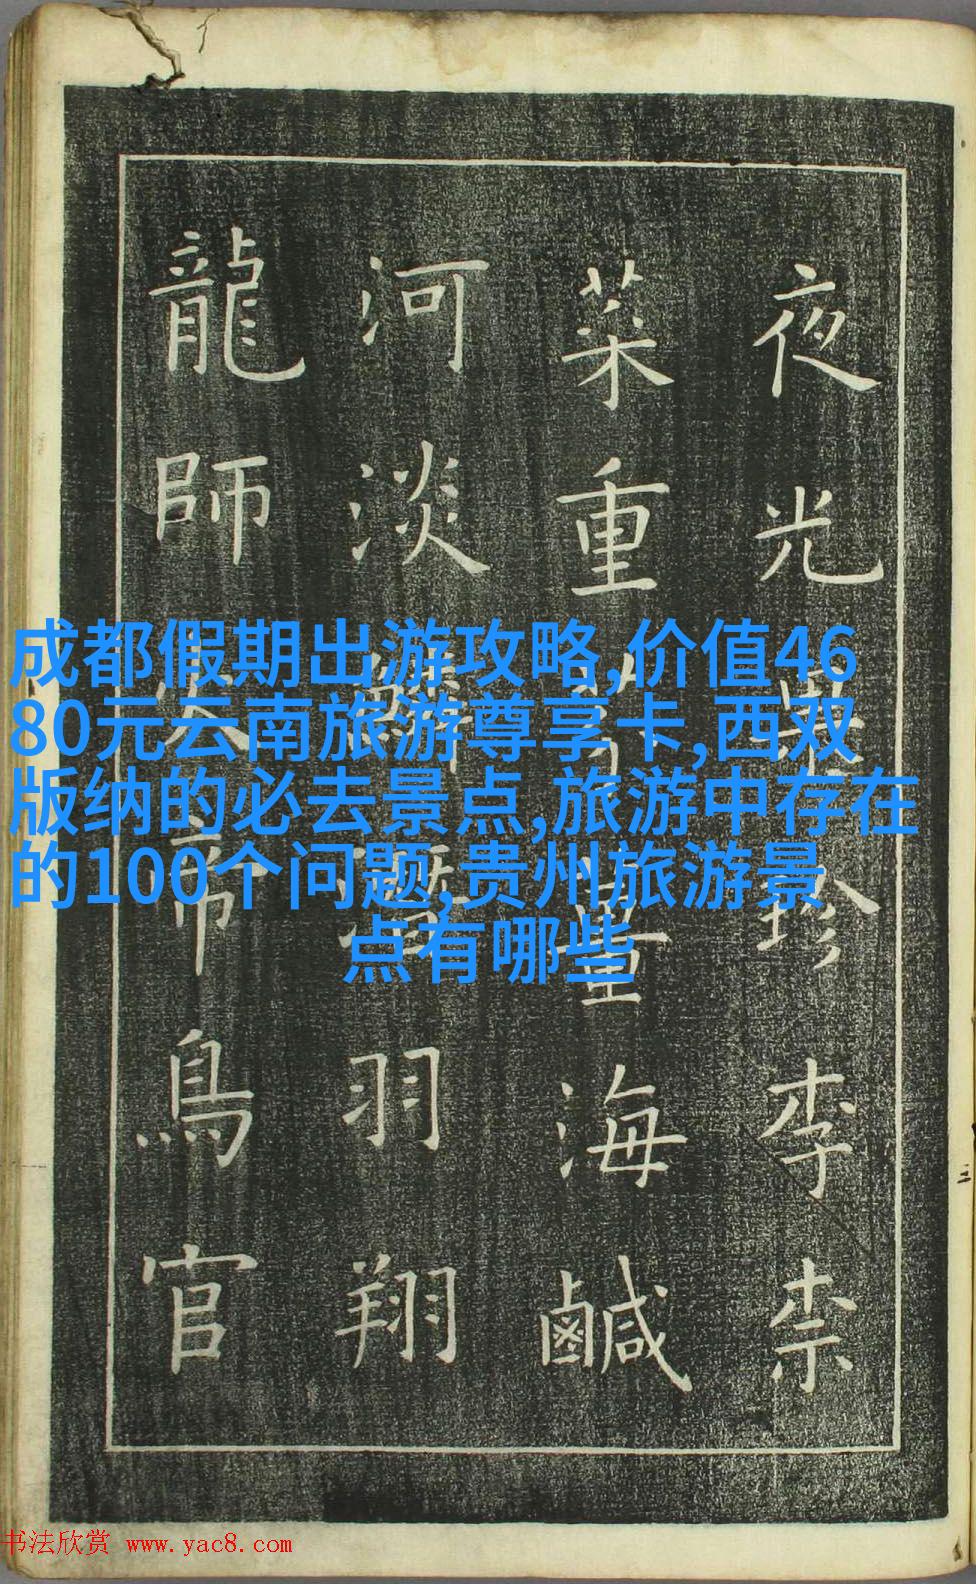 夜光果珍李柰
菜重芥薑海鹹
河淡鱗潛羽翔
龍師火帝鳥官
成都假期出游攻略,价值46
80元云南旅游尊享卡,西双
版纳的必去景点,旅游中存在
的100个问题,贵州旅游景
点有哪些
书法欣赏 www.yac8.com